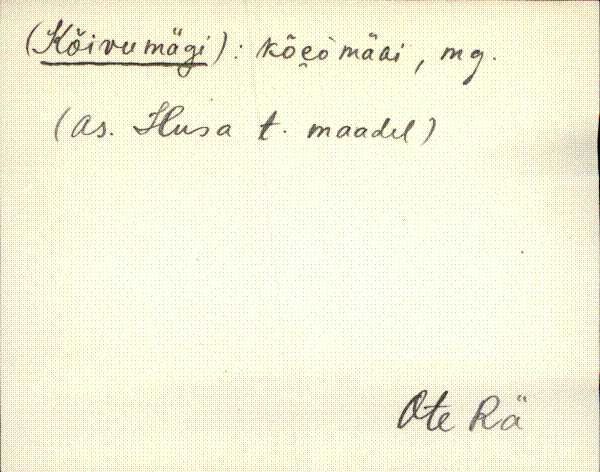 (Kõivumägi): kõe̯òmäai, mg.
(as. Husa t. maadel)
Ote Rä